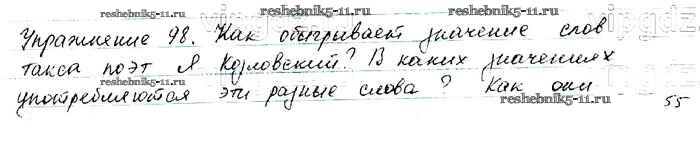 reshebnik5-11.ru reshebnik5-11.ru
Упражнение 98. Как обыгривает значение слов
такса поэт Я Козловский? В каких значениях
употребляются эти разные слова? Как они
reshebnik5-11.ru reshebnik5-11.ru
55